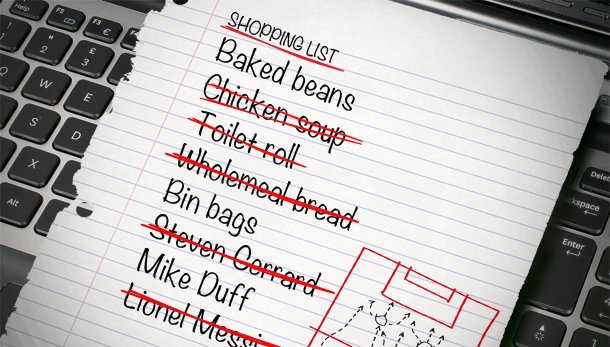 SHOPPING LIST
Baked beans
Chicken soup
Toilet roll
Wholemeal bread
Bin bags
Steven Gerrard
Mike Duff
Lionel Messi
Help
F2
F3
£
3
2
Q
W
E
S
D
X
Alt
Delete
Enter